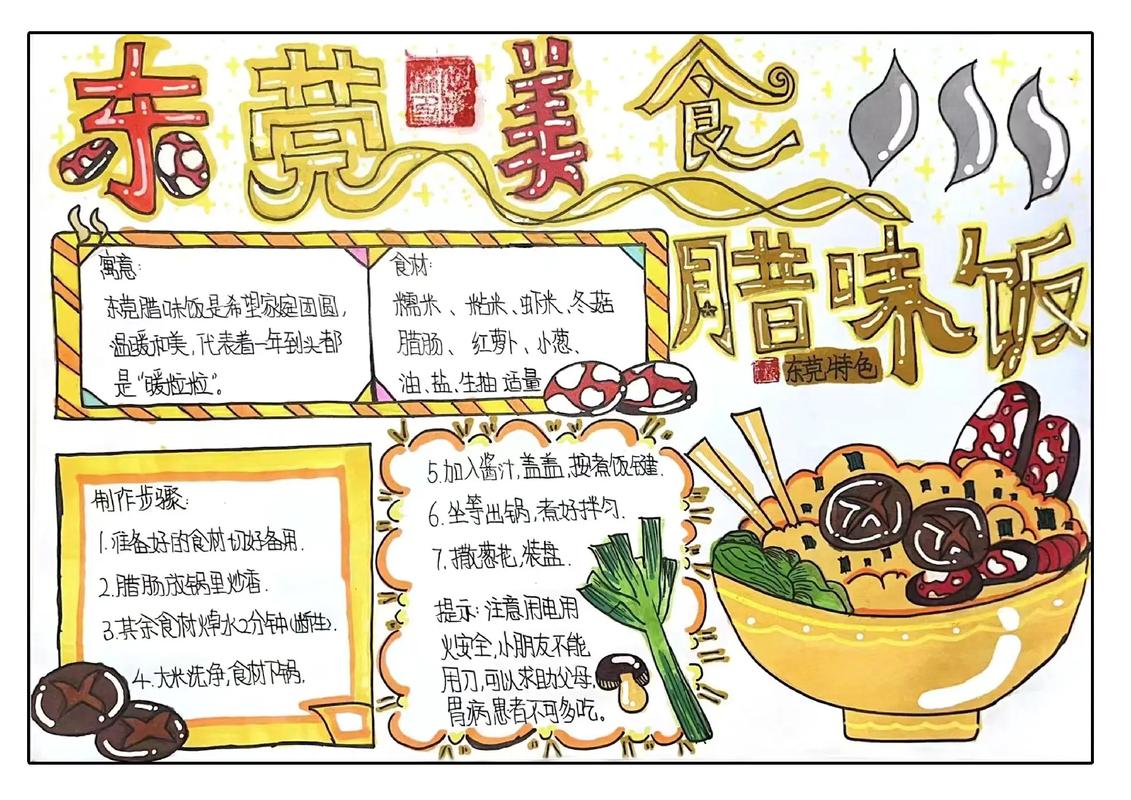 东莞美食
腊味饭
东莞特色
寓意:
东莞腊味饭是希望家庭团圆,
温暖和美,代表着一年到头都
是“暖粒粒”。
食材:
糯米、粘米、虾米、冬菇
腊肠、红萝卜、小葱、
油、盐、生抽 适量
制作步骤:
1.准备好的食材切好备用.
2.腊肠放锅里炒香.
3.其余食材焯水2分钟(断生).
4.大米洗净,食材下锅.
5.加入酱汁,盖盖,按煮饭键.
6.坐等出锅,煮好拌匀.
7.撒葱花,装盘.
提示:注意用电用
火安全,小朋友不能
用刀,可以求助父母,
胃病患者不可多吃。